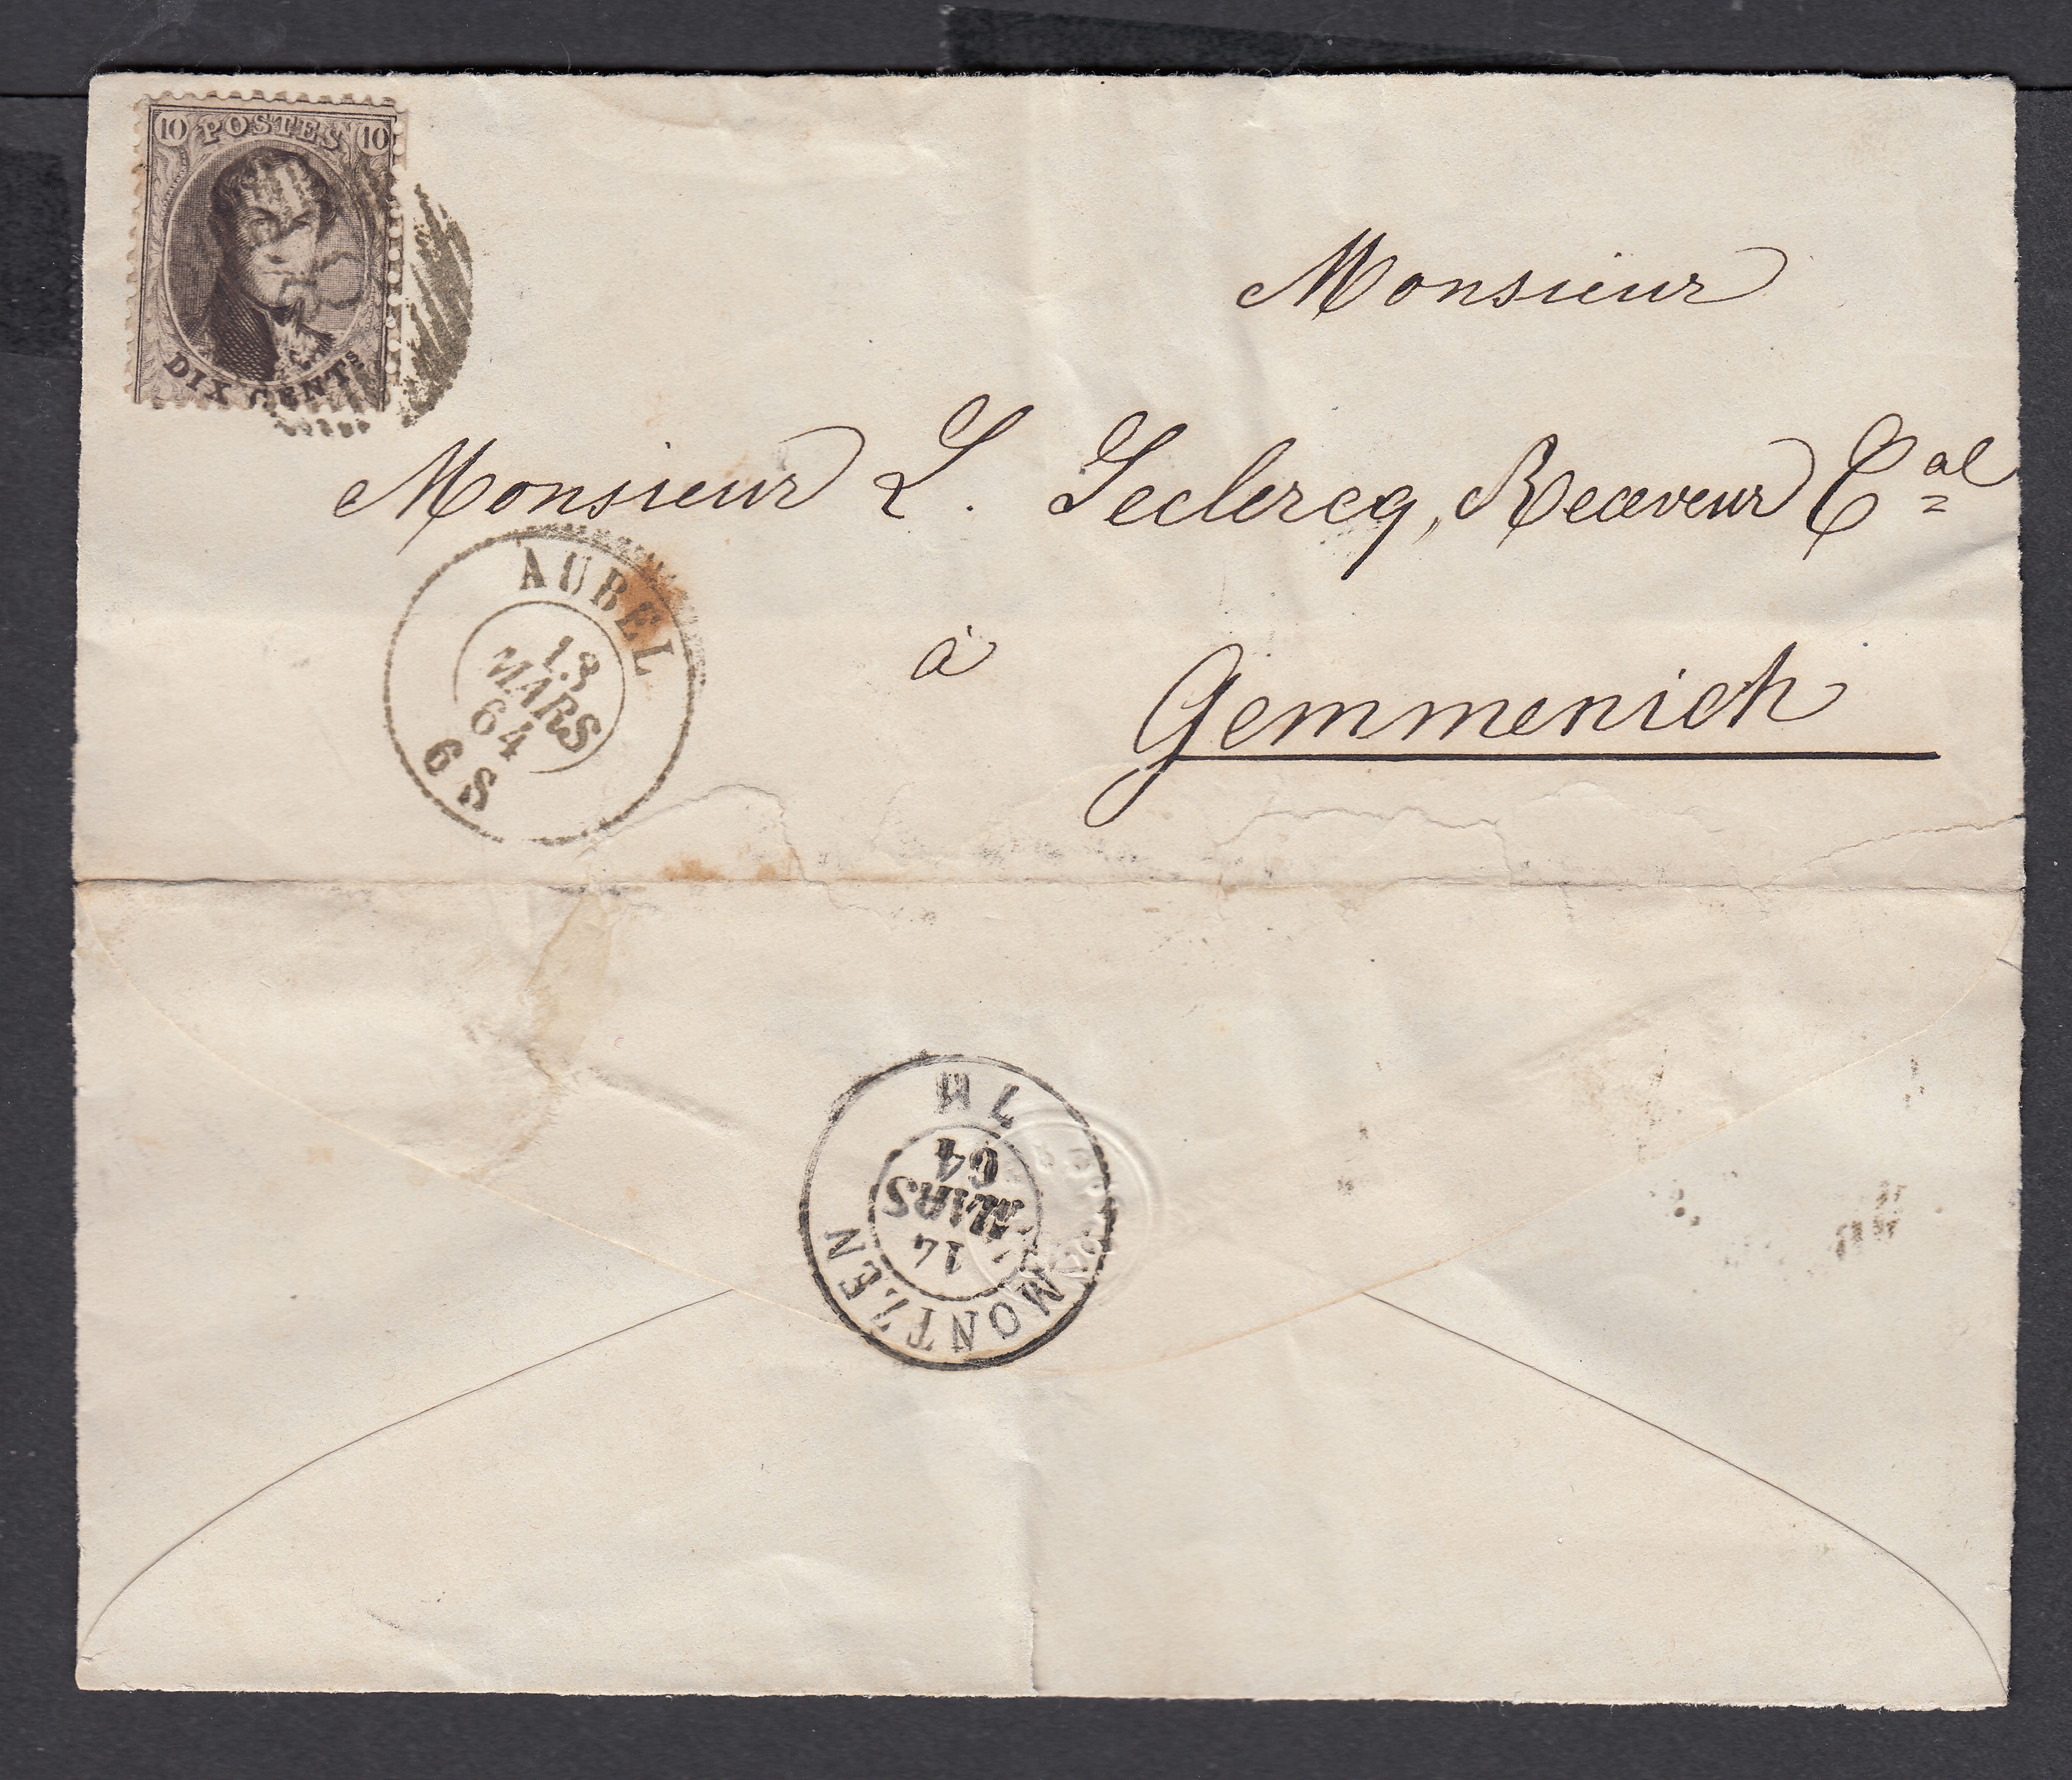 10 POSTES 10
DIX CENTS
Monsieur
Monsieur L. Leclercq, Receveur Cal
à
Gemmenich
AUBEL
13
MARS
64
6 S
MONTZEN
14
MARS
64
7 M